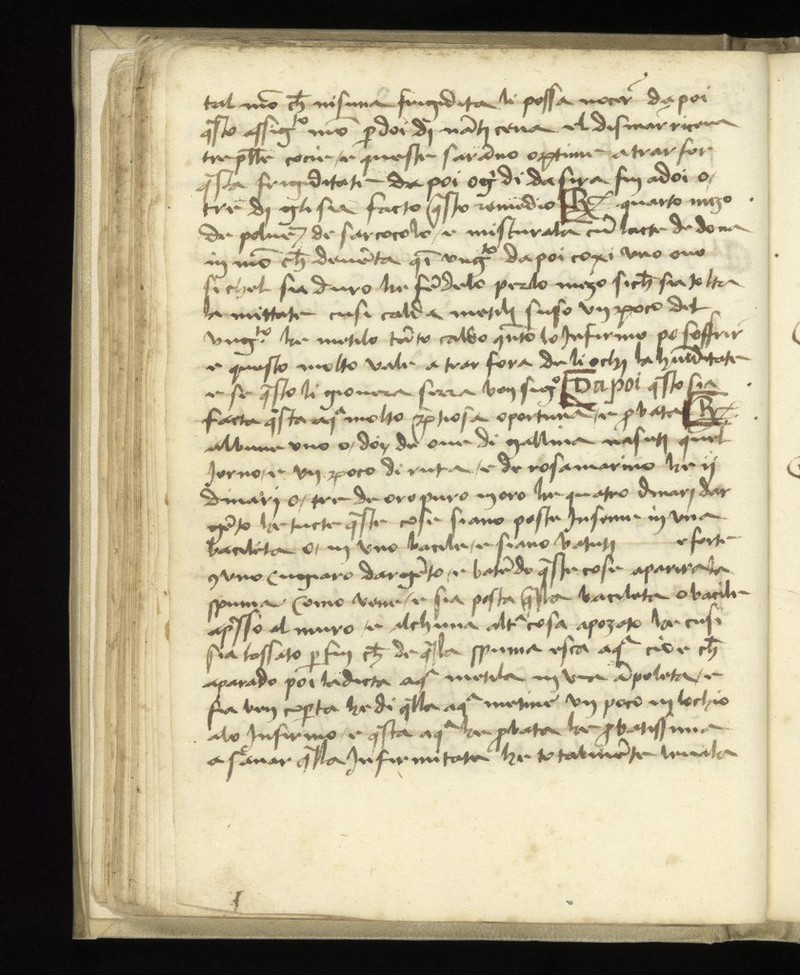 tal mō ch̄ nisuna frigidita li possa nocer da poi
q̄sto assig̃to mō p̄ doi dī nāti cena el disinar ricena
tre pīlle cocie / e queste sarāno optime a trar for
q̄sta frigiditate da poi og̃ dī da sira fin a doi o/
tre dī gli sia facto q̄sto remedio ℞ quarto mezo
de polue de sarcocolo / e misturala cū lacte de dona
in mō ch̄ deuēta q̄i ung̃to da poi coxi uno ouo
si chel sia duro he fēdelo per lo mezo sich̄ sia tolta
la mittate cusi calda metili suso un poco del
ung̃to he metilo tāto caldo q̄nto lo Infirmo po soffrir
e questo molto vale a trar fora de li ochi la humiditate
e se q̄sto li giouera serra bon sig̃o Da poi q̄sto sia
facta q̄sta aq̄ molto p̄tiosa oportuna / e p̄bata ℞
albume uno o/ doy de oue di gallina nasuti quel
Jorno / e un poco di ruta / e de rosamarino he ij
dinari o/ tre de oro puro in oro he quatro dinari dar
gēto he tucte q̄ste cose siano poste Inseme in una
bacileta o/ in uno bacile / e siano batuti e forte
9 uno Cugiaro dargēto / e batēdo q̄ste cose aparirala
spuma Como neue / e sia posta q̄lla bacileta o bacile
ap̄sso al muro e alchuna alt̄ cosa apozato he cusi
sia lassato p̄ fin ch̄ de q̄lla spuma esca aq̄ cioe ch̄
aparado poi la dicta aq̄ metila in una āpoleta / e
sia ben cop̄ta he di q̄lla aq̄ metine un poco in lochio
alo Infirmo / e q̄sta aq̄ he p̄bata he p̄batissima
a sanar q̄lla Infirmitate he totalmēte leuala